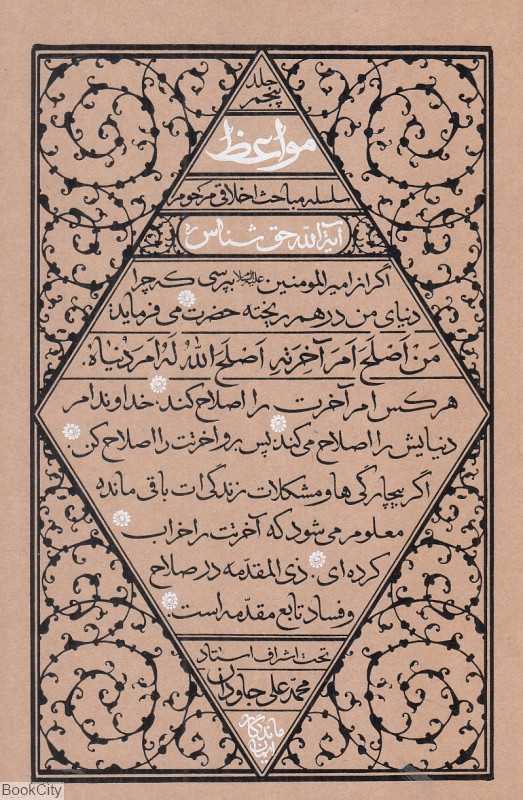 جلد
پنجم
مواعظ
سلسله مباحث اخلاقی مرحوم
آیة الله حق شناس ره
اگر از امیرالمومنین علیه السلام بپرسی که چرا
دنیای من در هم ریخته حضرت می فرماید:
مَن اَصلَحَ اَمرَ آخرتِهِ اَصلَحَ اللهُ لَهُ اَمرَ دُنیاه.
هر کس امر آخرت را اصلاح کند، خداوند امر
دنیایش را اصلاح می کند؛ پس برو آخرتت را اصلاح کن.
اگر بیچارگی ها و مشکلات زندگی ات باقی مانده
معلوم می شود که آخرتت را خراب
کرده ای. ذی المقدمه در صلاح
و فساد تابع مقدّمه است.
تحت اشراف استاد
محمد علی جاودان
ماندگار
BookCity